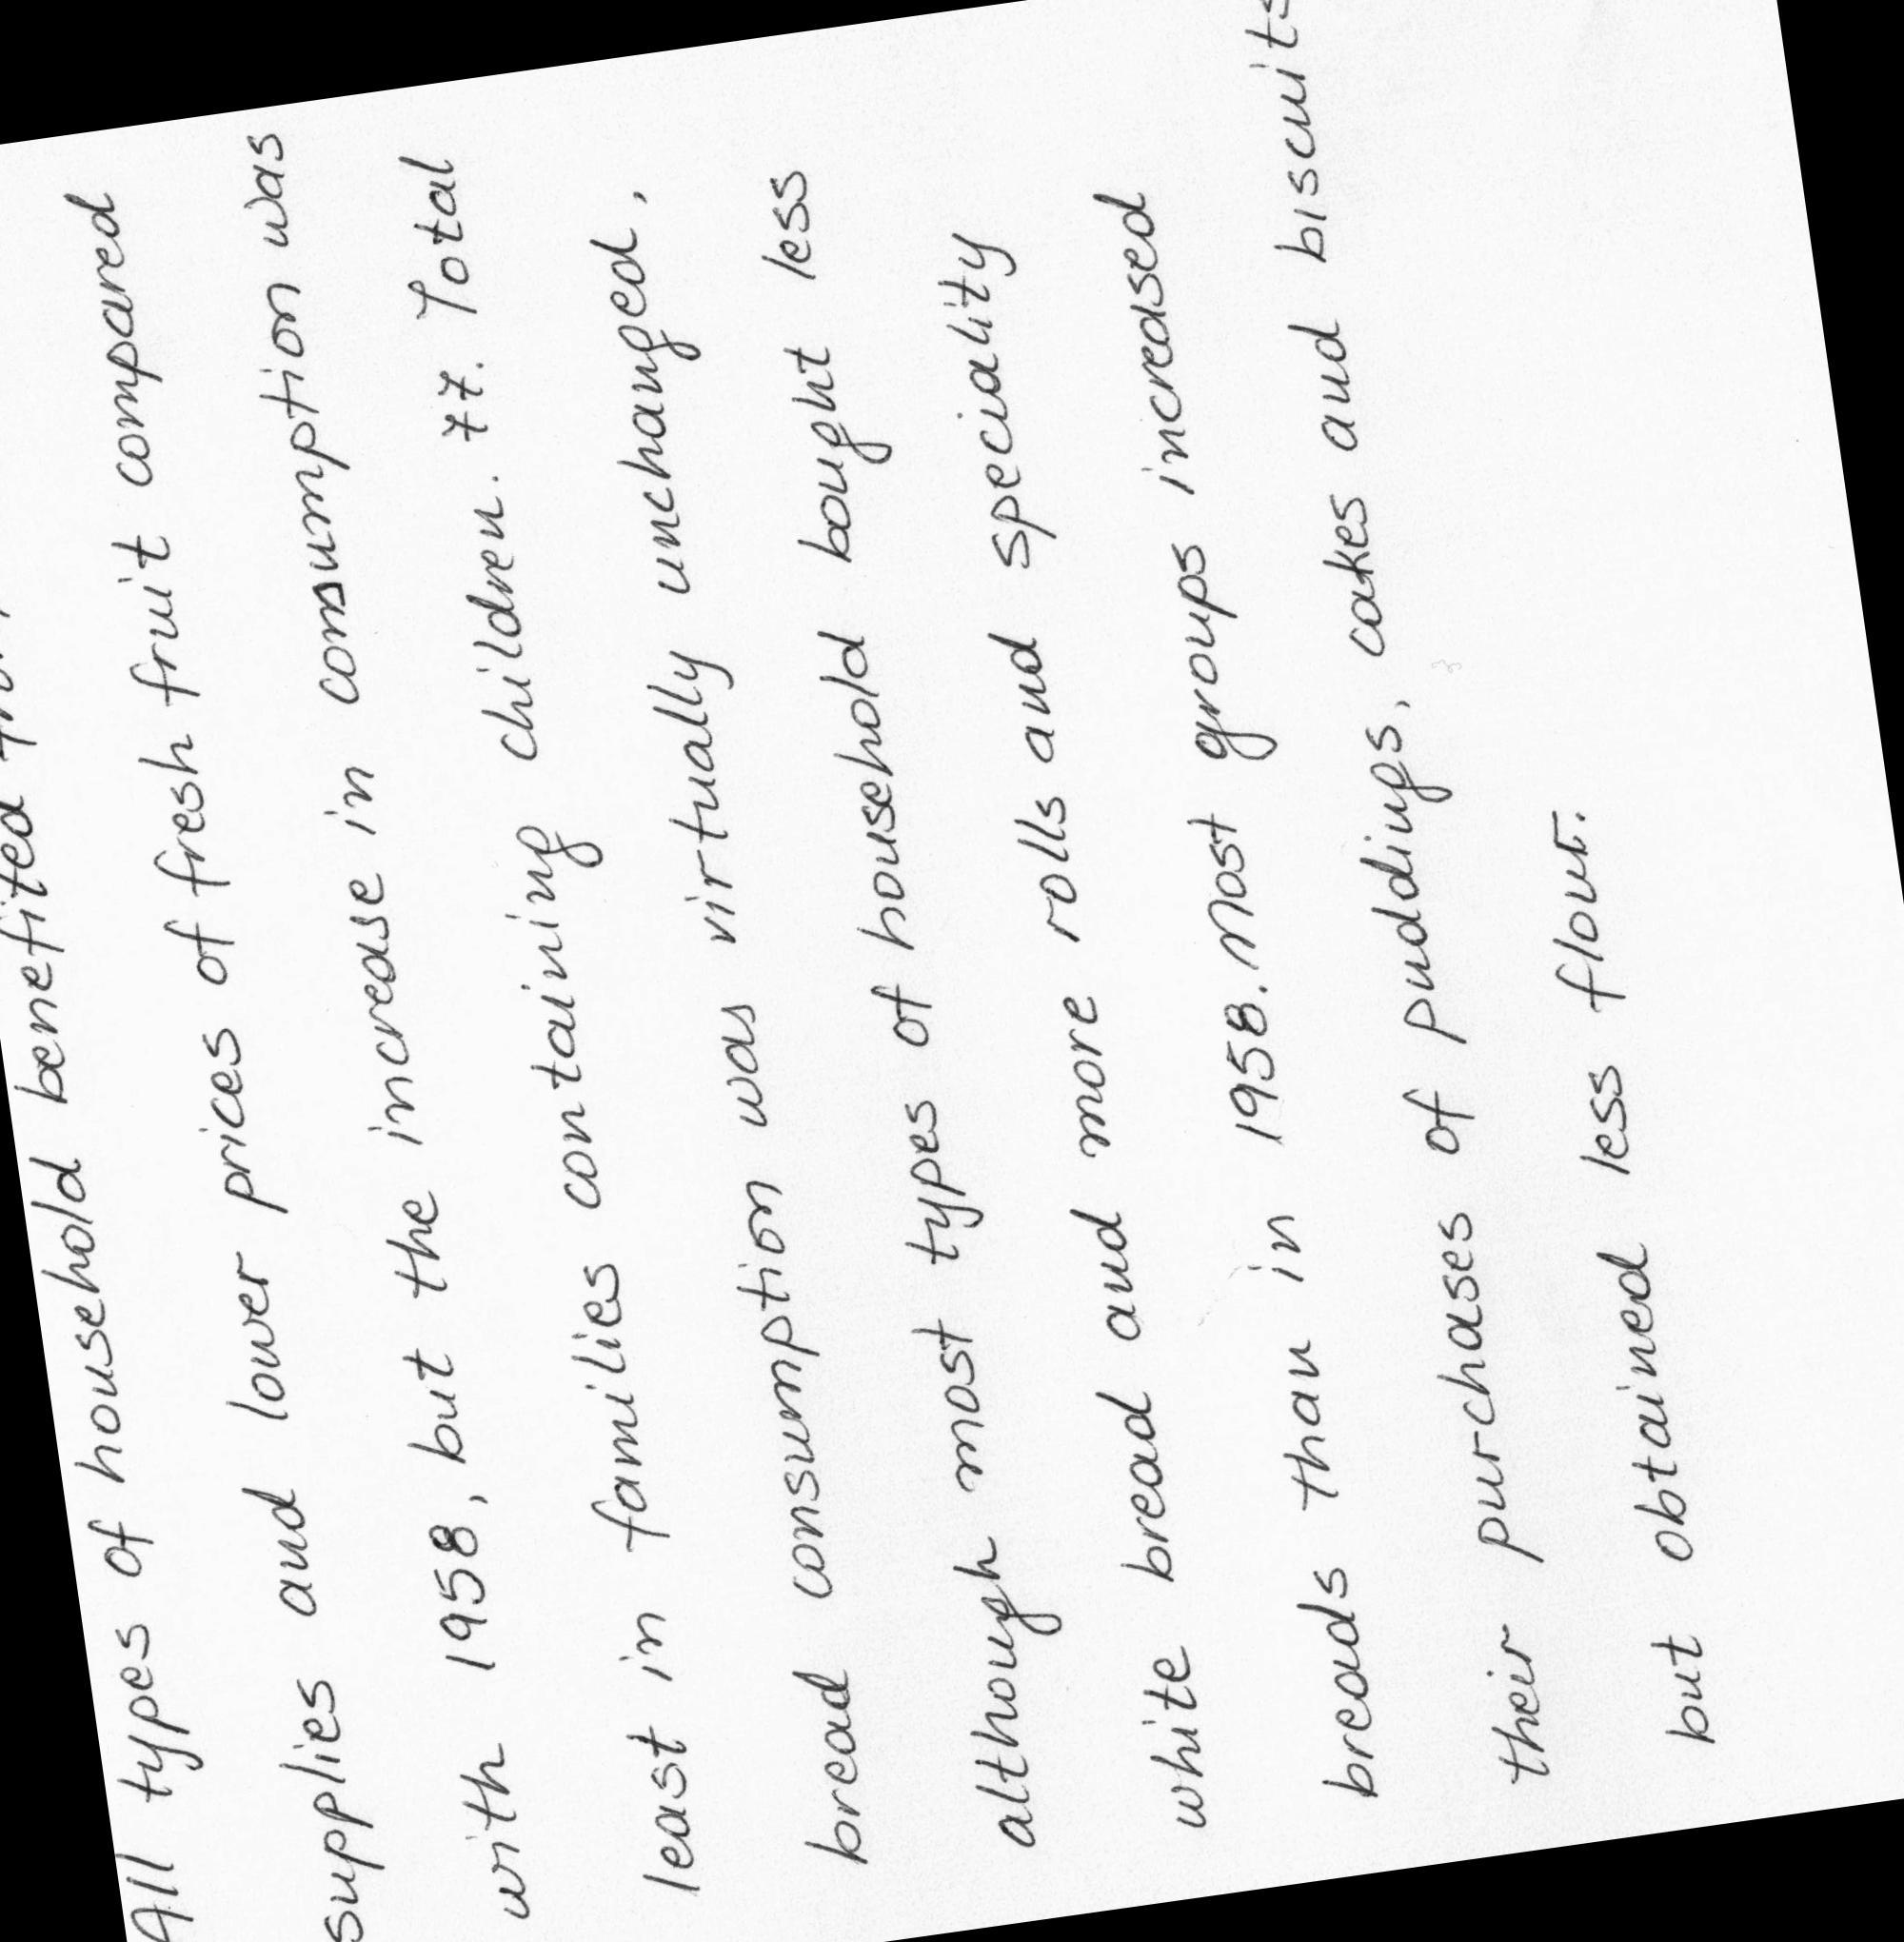 All types of household benefited
supplies and lower prices of fresh fruit compared
with 1958, but the increase in consumption was
least in families containing children. 77. Total
bread consumption was virtually unchanged,
although most types of household bought less
white bread and more rolls and speciality
breads than in 1958. Most groups increased
their purchases of puddings, cakes and biscuits
but obtained less flour.